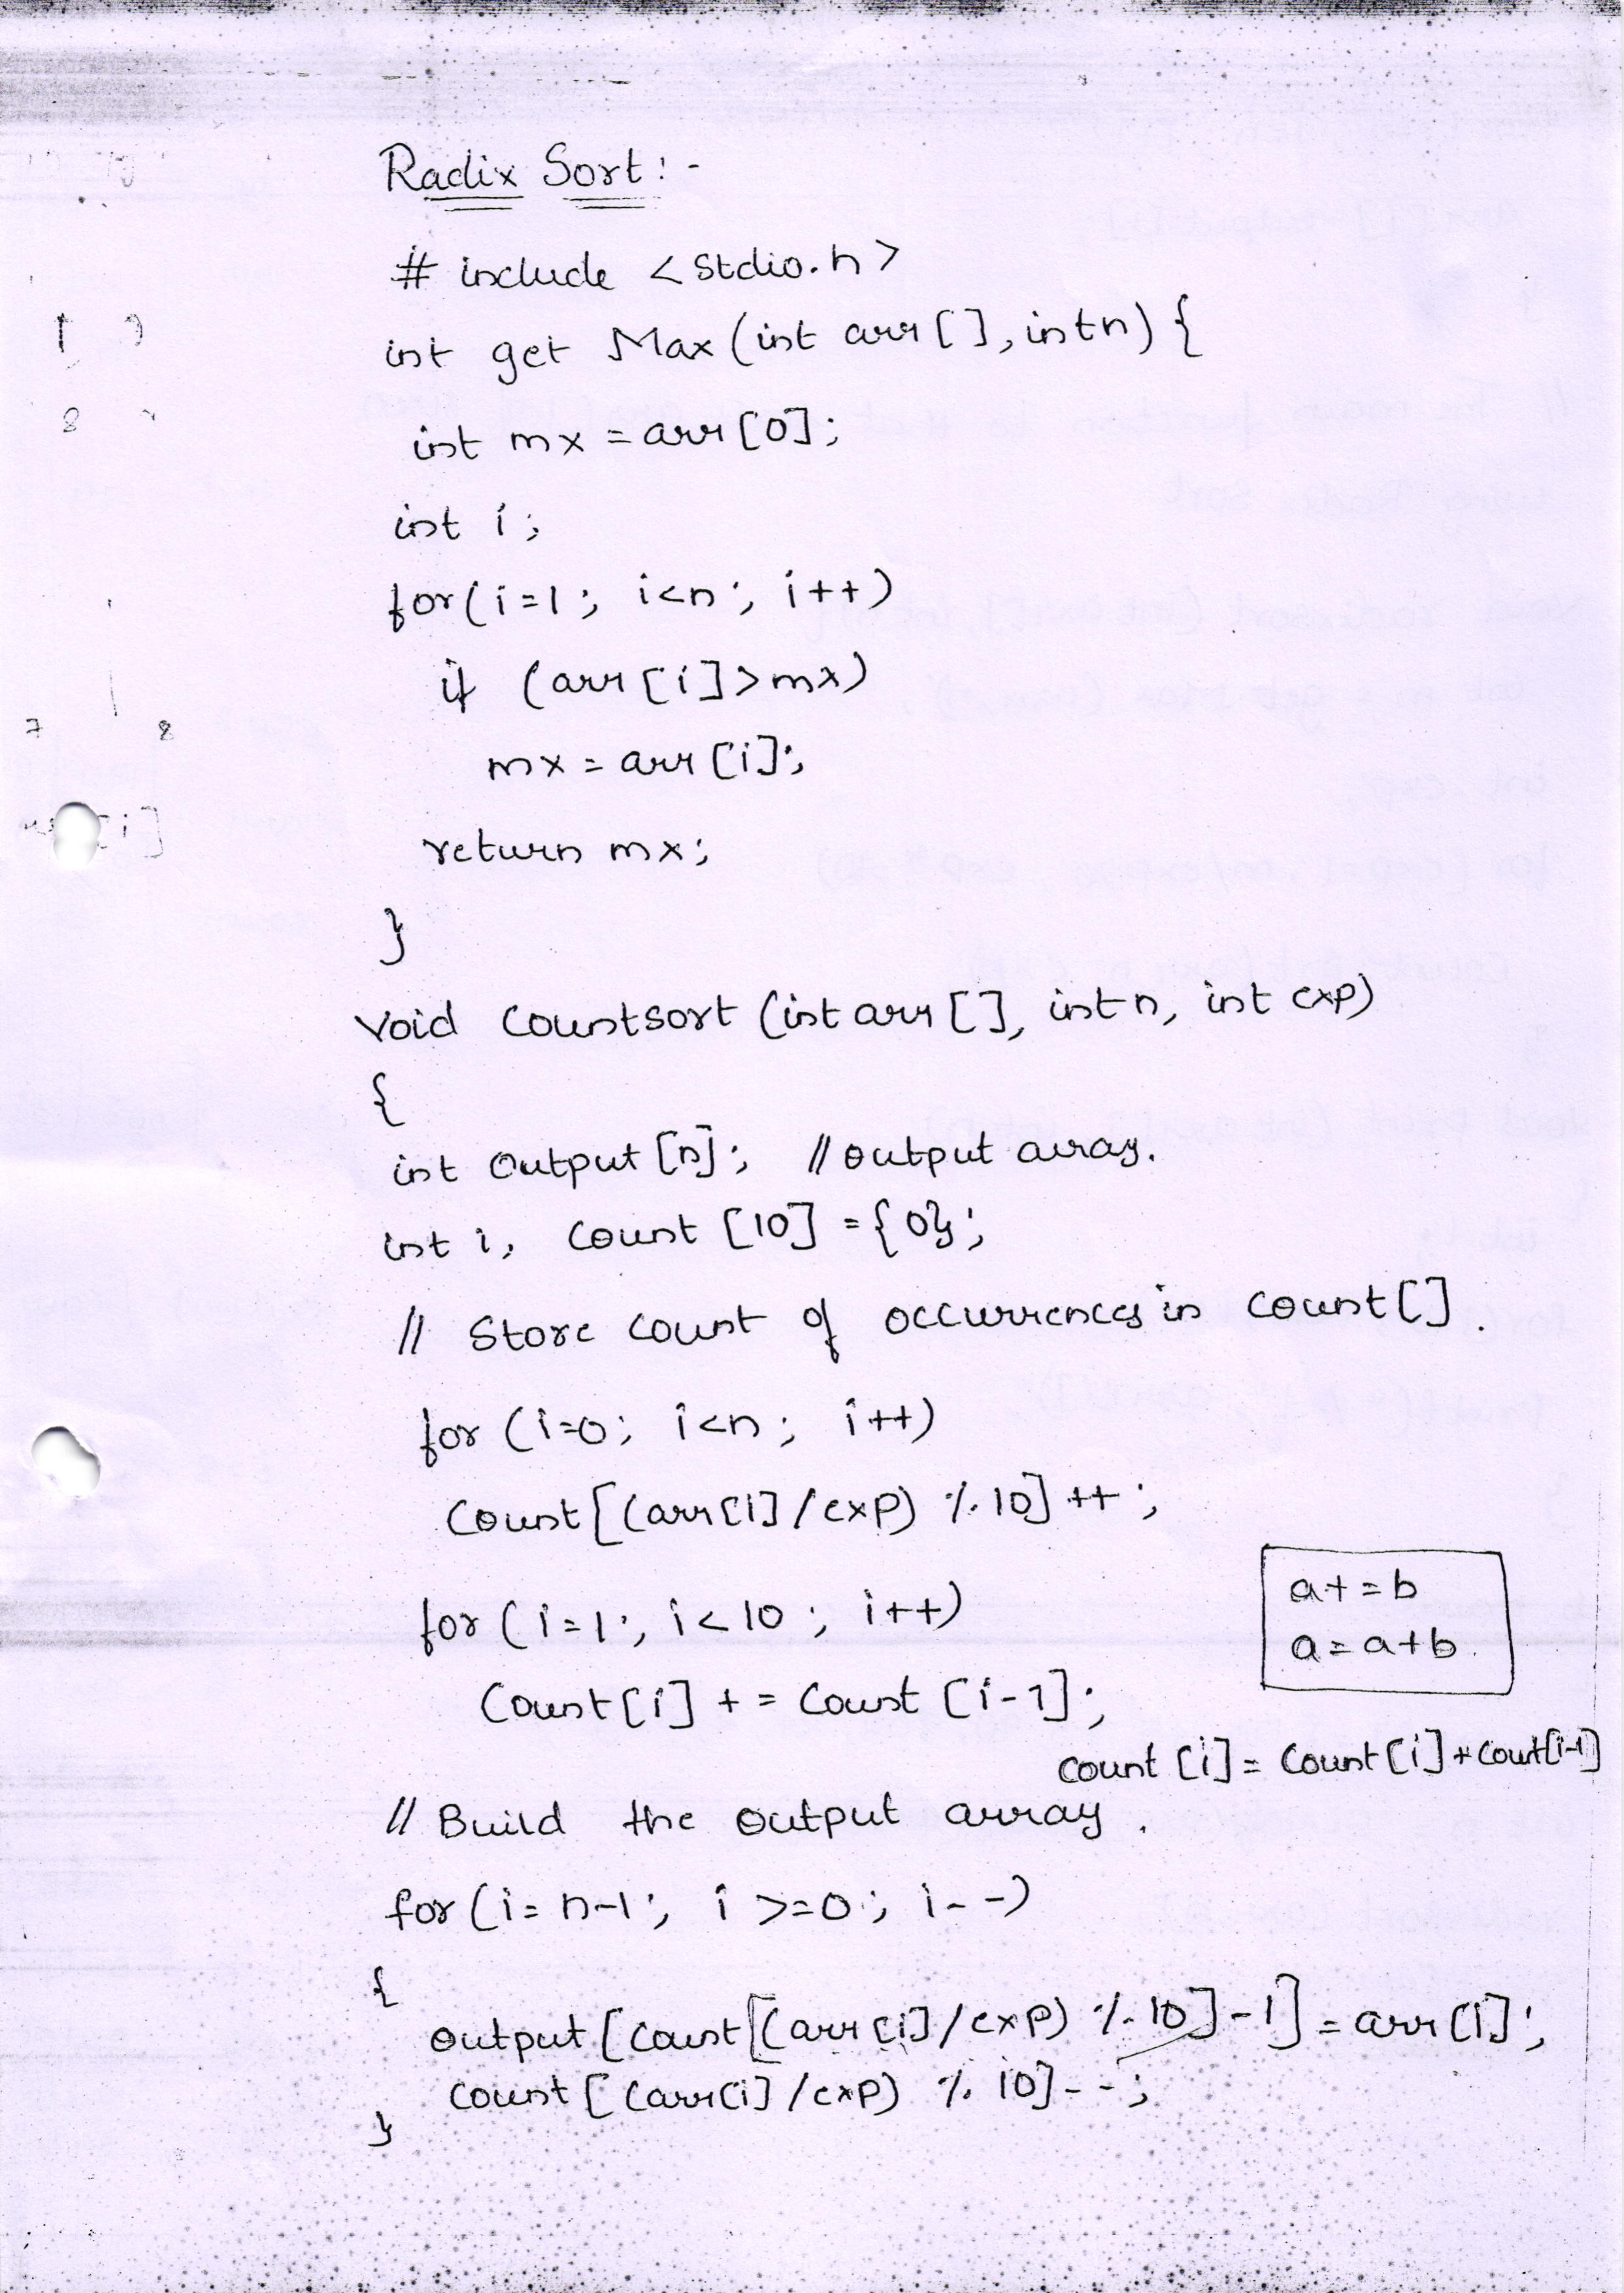 Radix Sort:-
# include <stdio.h>
int get Max (int arr [], int n) {
int mx = arr [0];
int i;
for (i=1; i<n; i++)
if (arr [i] > mx)
mx = arr [i];
return mx;
}
void countsort (int arr [], int n, int exp)
{
int output [n]; // output array.
int i, count [10] = {0};
// Store count of occurrences in count [].
for (i=0; i<n; i++)
count [(arr[i] / exp) % 10] ++;
for (i=1; i<10; i++)
a+=b
a=a+b.
count [i] += count [i-1];
count [i] = count [i] + cout[i-1]
// Build the output array.
for (i= n-1; i >=0; i--)
{
output [count [(arr [i] / exp) % 10] -1] = arr [i];
count [(arr[i] / exp) % 10] --;
}
7 8
8
[i]